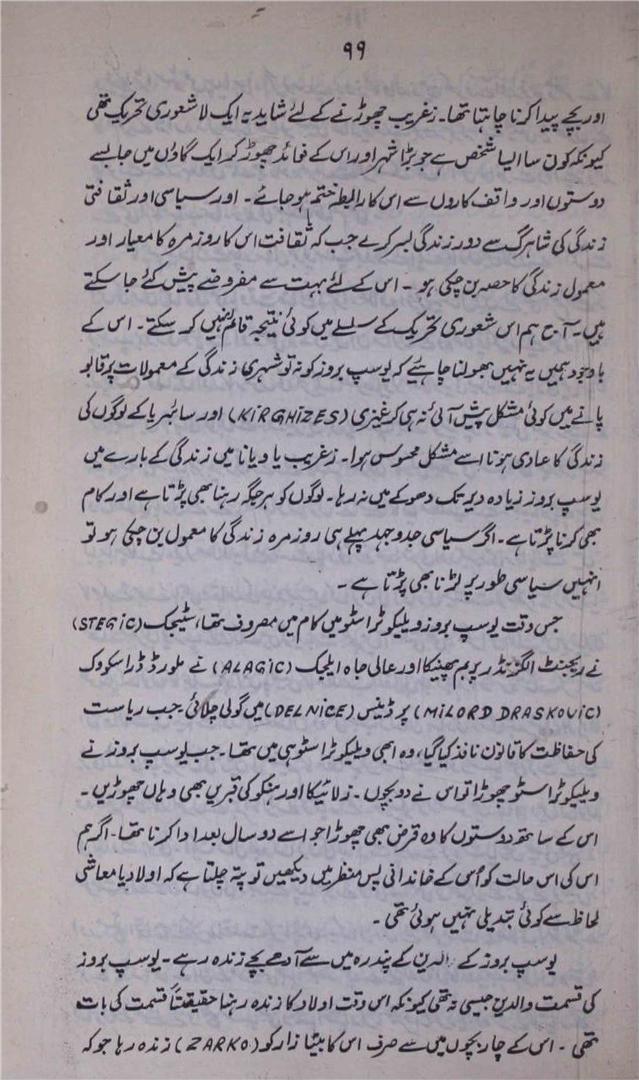 ۹۹
اور بچے پیدا کرنا چاہتا تھا۔ زغریب چھوڑنے کے لئے شاید یہ ایک لاشعوری تحریک تھی
کیونکہ کون سا ایسا شخص ہے جو بڑا شہر اور اس کے فوائد چھوڑ کر ایک گاؤں میں جا بسے
دوستوں اور واقف کاروں سے اس کا رابطہ ختم ہو جائے۔ اور سیاسی اور ثقافتی
زندگی کی شاہرگ سے دور زندگی بسر کرے جب کہ ثقافت اس کا روز مرہ کا معیار اور
معمول زندگی کا حصہ بن چکی ہو۔ اس کے لئے بہت سے مفروضے پیش کئے جا سکتے
ہیں۔ آج ہم اس شعوری تحریک کے سلسلے میں کوئی نتیجہ قائم نہیں کر سکتے۔ اس کے
باوجود ہمیں یہ نہیں بھولنا چاہئیے کہ یوسپ بروز کو نہ تو شہری زندگی کے معمولات پر قابو
پانے میں کوئی مشکل پیش آئی نہ ہی کرغیزی (KIRGHIZES) اور سائبریا کے لوگوں کی
زندگی کا عادی ہونا اسے مشکل محسوس ہوا۔ زغریب یا ویانا میں زندگی کے بارے میں
یوسپ بروز زیادہ دیر تک دھوکے میں نہ رہا۔ لوگوں کو ہر جگہ رہنا بھی پڑتا ہے اور کام
بھی کرنا پڑتا ہے۔ اگر سیاسی جدوجہد پہلے ہی روز مرہ زندگی کا معمول بن چکی ہو تو
انہیں سیاسی طور پر لڑنا بھی پڑتا ہے۔
جس وقت یوسپ بروز ویلیکو ٹراسٹو میں کام میں مصروف تھا، سٹیجک (STEGIC)
نے ریجنٹ الگزنڈر پر بم پھینکا اور عالی جاہ ایلجک (ALAGIC) نے ملورڈ ڈراسکووک
(MILORD DRASKOVIC) پر ڈلنیس (DELNICE) میں گولی چلائی۔ جب ریاست
کی حفاظت کا قانون نافذ کیا گیا، وہ ابھی ویلیکو ٹراسٹو ہی میں تھا۔ جب یوسپ بروز نے
ویلیکو ٹراسٹو چھوڑا تو اس نے دو بچوں۔ زلاٹیکا اور ہنکو کی قبریں بھی وہاں چھوڑیں۔
اس کے ساتھ دوستوں کا وہ قرض بھی چھوڑا جو اسے دو سال بعد ادا کرنا تھا۔ اگر ہم
اس کی اس حالت کو اُس کے خاندانی پس منظر میں دیکھیں تو پتہ چلتا ہے کہ اولاد یا معاشی
لحاظ سے کوئی تبدیلی نہیں ہوئی تھی۔
یوسپ بروز کے والدین کے پندرہ میں سے آدھے بچے زندہ رہے۔ یوسپ بروز
کی قسمت والدین جیسی نہ تھی کیونکہ اس وقت اولاد کا زندہ رہنا حقیقتاً قسمت کی بات
تھی۔ اس کے چار بچوں میں سے صرف اس کا بیٹا زارکو (ZARKO) زندہ رہا جو کہ